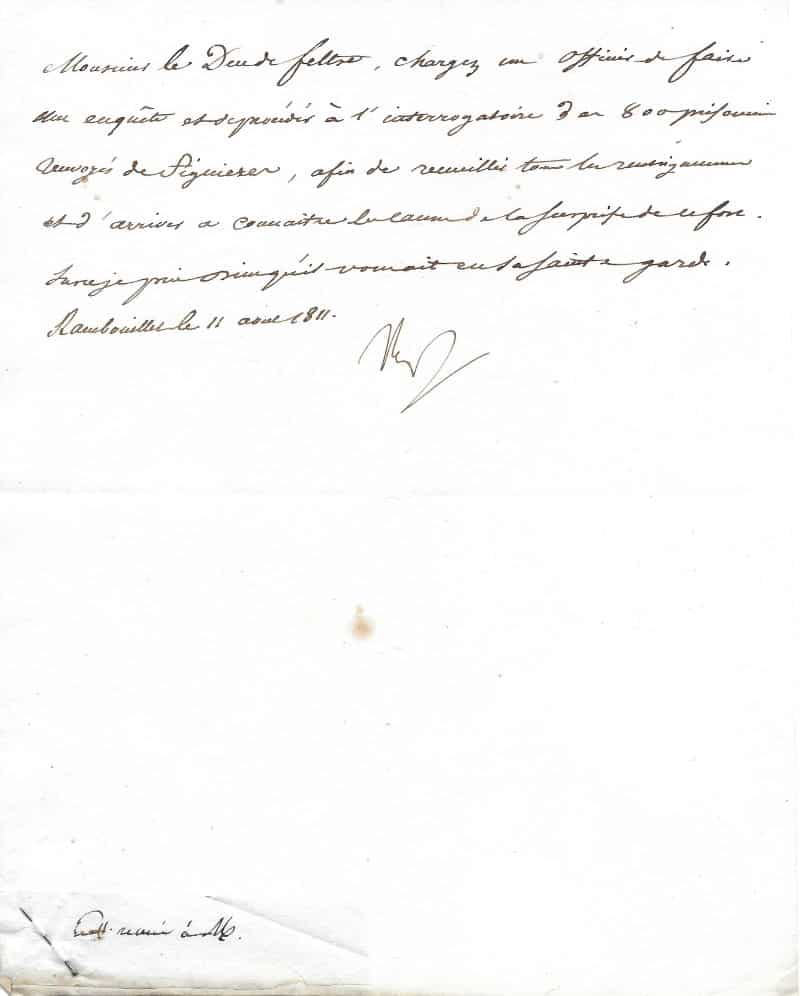 Monsieur le Duc de feltre, chargez un officier de faire
une enquête et de procéder à l'interrogatoire des 800 prisonniers
renvoyés de Figuieres, afin de recueillir tous les renseignemens
et d'arriver à connaitre les causes de la surprise de ce fort.
Sur ce je prie Dieu qu'il vous ait en sa sainte garde.
Rambouillet le 11 aout 1811.
Np
remis à M.